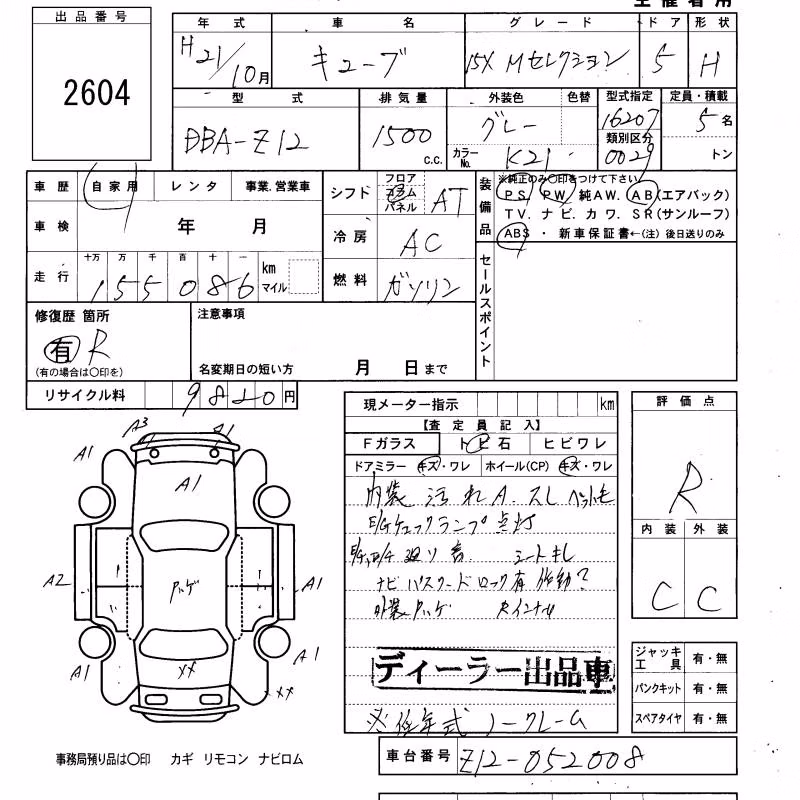 主催者用
出品番号
2604
年式 車名 グレード ドア 形状
H21/10月 キューブ 15X Mセレクション 5 H
型式 排気量 外装色 色替 型式指定 定員・積載
DBA-Z12 1500c.c. グレー 16207 5名
カラーNo. K21 類別区分 0029 トン
車歴 自家用 レンタ 事業.営業車
車検 年 月
走行 十万 万 千 百 十 一
155086 km マイル
シフト フロア コラム パネル AT
冷房 AC
燃料 ガソリン
装備品
※純正のみ○印をつけて下さい
PS PW 純AW. AB(エアバック)
TV. ナビ. カワ. SR(サンルーフ)
ABS ・ 新車保証書←(注) 後日送りのみ
セールスポイント
修復歴 箇所
有 R
(有の場合は○印を)
注意事項
名変期日の短い方 月 日まで
リサイクル料 9820円
現メーター指示 km
【査定員記入】
Fガラス トビ石 ヒビワレ
ドアミラー キズ・ワレ ホイール(CP) キズ・ワレ
内装 汚れ A.スレ
E/Gチェックランプ点灯
シートキレ
ナビパスワードロック有 作動?
外装
ディーラー出品車
※低年式ノークレーム
車台番号 Z12-052008
評価点
R
内装 外装
C C
ジャッキ工具 有・無
パンクキット 有・無
スペアタイヤ 有・無
A3
A1 A1
A1
A2 A1
A1 A1
事務局預り品は○印 カギ リモコン ナビロム